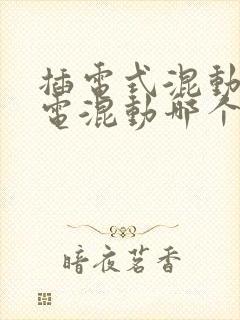 插電式混動
電混動哪个
暗夜茗香